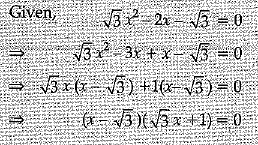 Given, √3x² – 2x – √3 = 0
⇒ √3x² – 3x + x – √3 = 0
⇒ √3x(x – √3) + 1(x – √3) = 0
⇒ (x – √3)(√3x + 1) = 0